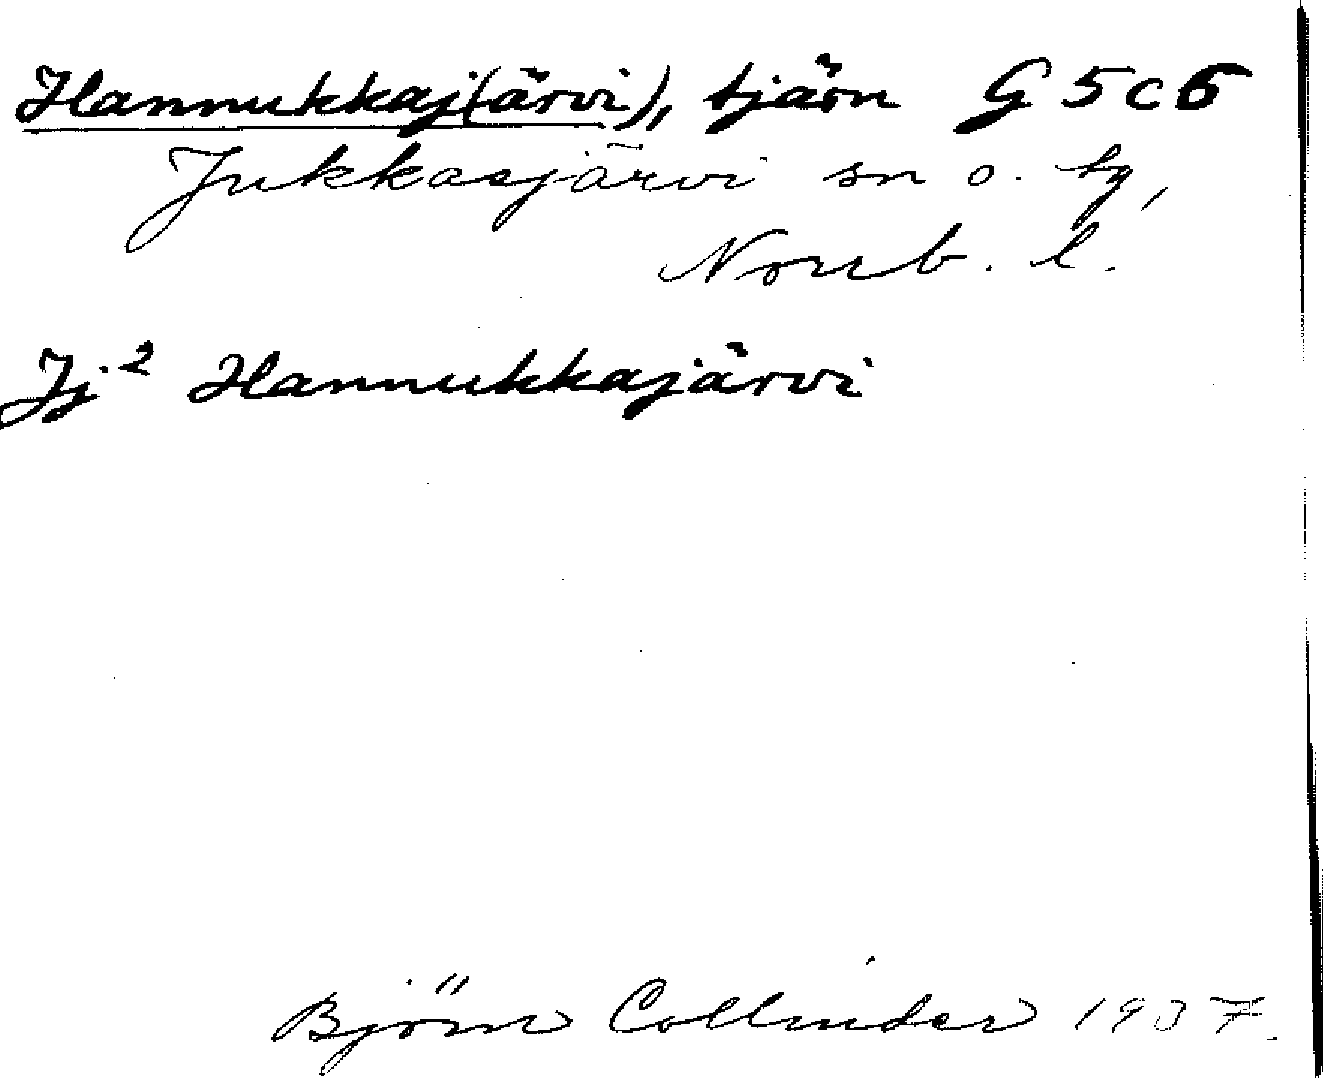 Hannukkaj(ärvi), tjärn G 5 c 6
Jukkasjärvi sn o. tg,
Norrb. l.
Jj² Hannukkajärvi
Björn Collinder 1937.